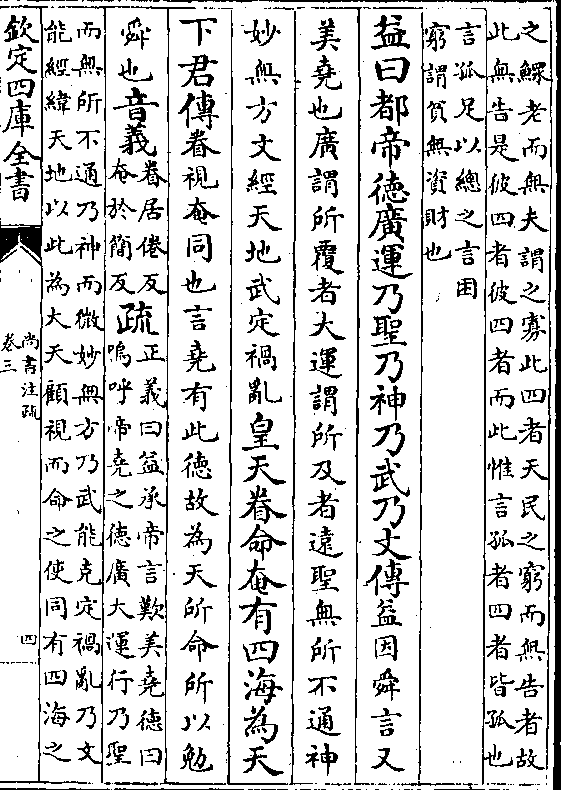 之鰥老而無夫謂之寡此四者天民之窮而無告者故
此無告是彼四者彼四者而此惟言孤者四者皆孤也
言孤足以總之言困
窮謂貧無資財也
益曰都帝德廣運乃聖乃神乃武乃文傳益因舜言又
美堯也廣謂所覆者大運謂所及者遠聖無所不通神
妙無方文經天地武定禍亂皇天眷命奄有四海為天
下君傳眷視奄同也言堯有此德故為天所命所以勉
舜也音義眷居倦反
奄於簡反疏正義曰益承帝言歎美堯德曰
嗚呼帝堯之德廣大運行乃聖
而無所不通乃神而微妙無方乃武能克定禍亂乃文
能經緯天地以此為大天顧視而命之使同有四海之
欽定四庫全書
尚書注疏
卷三
四